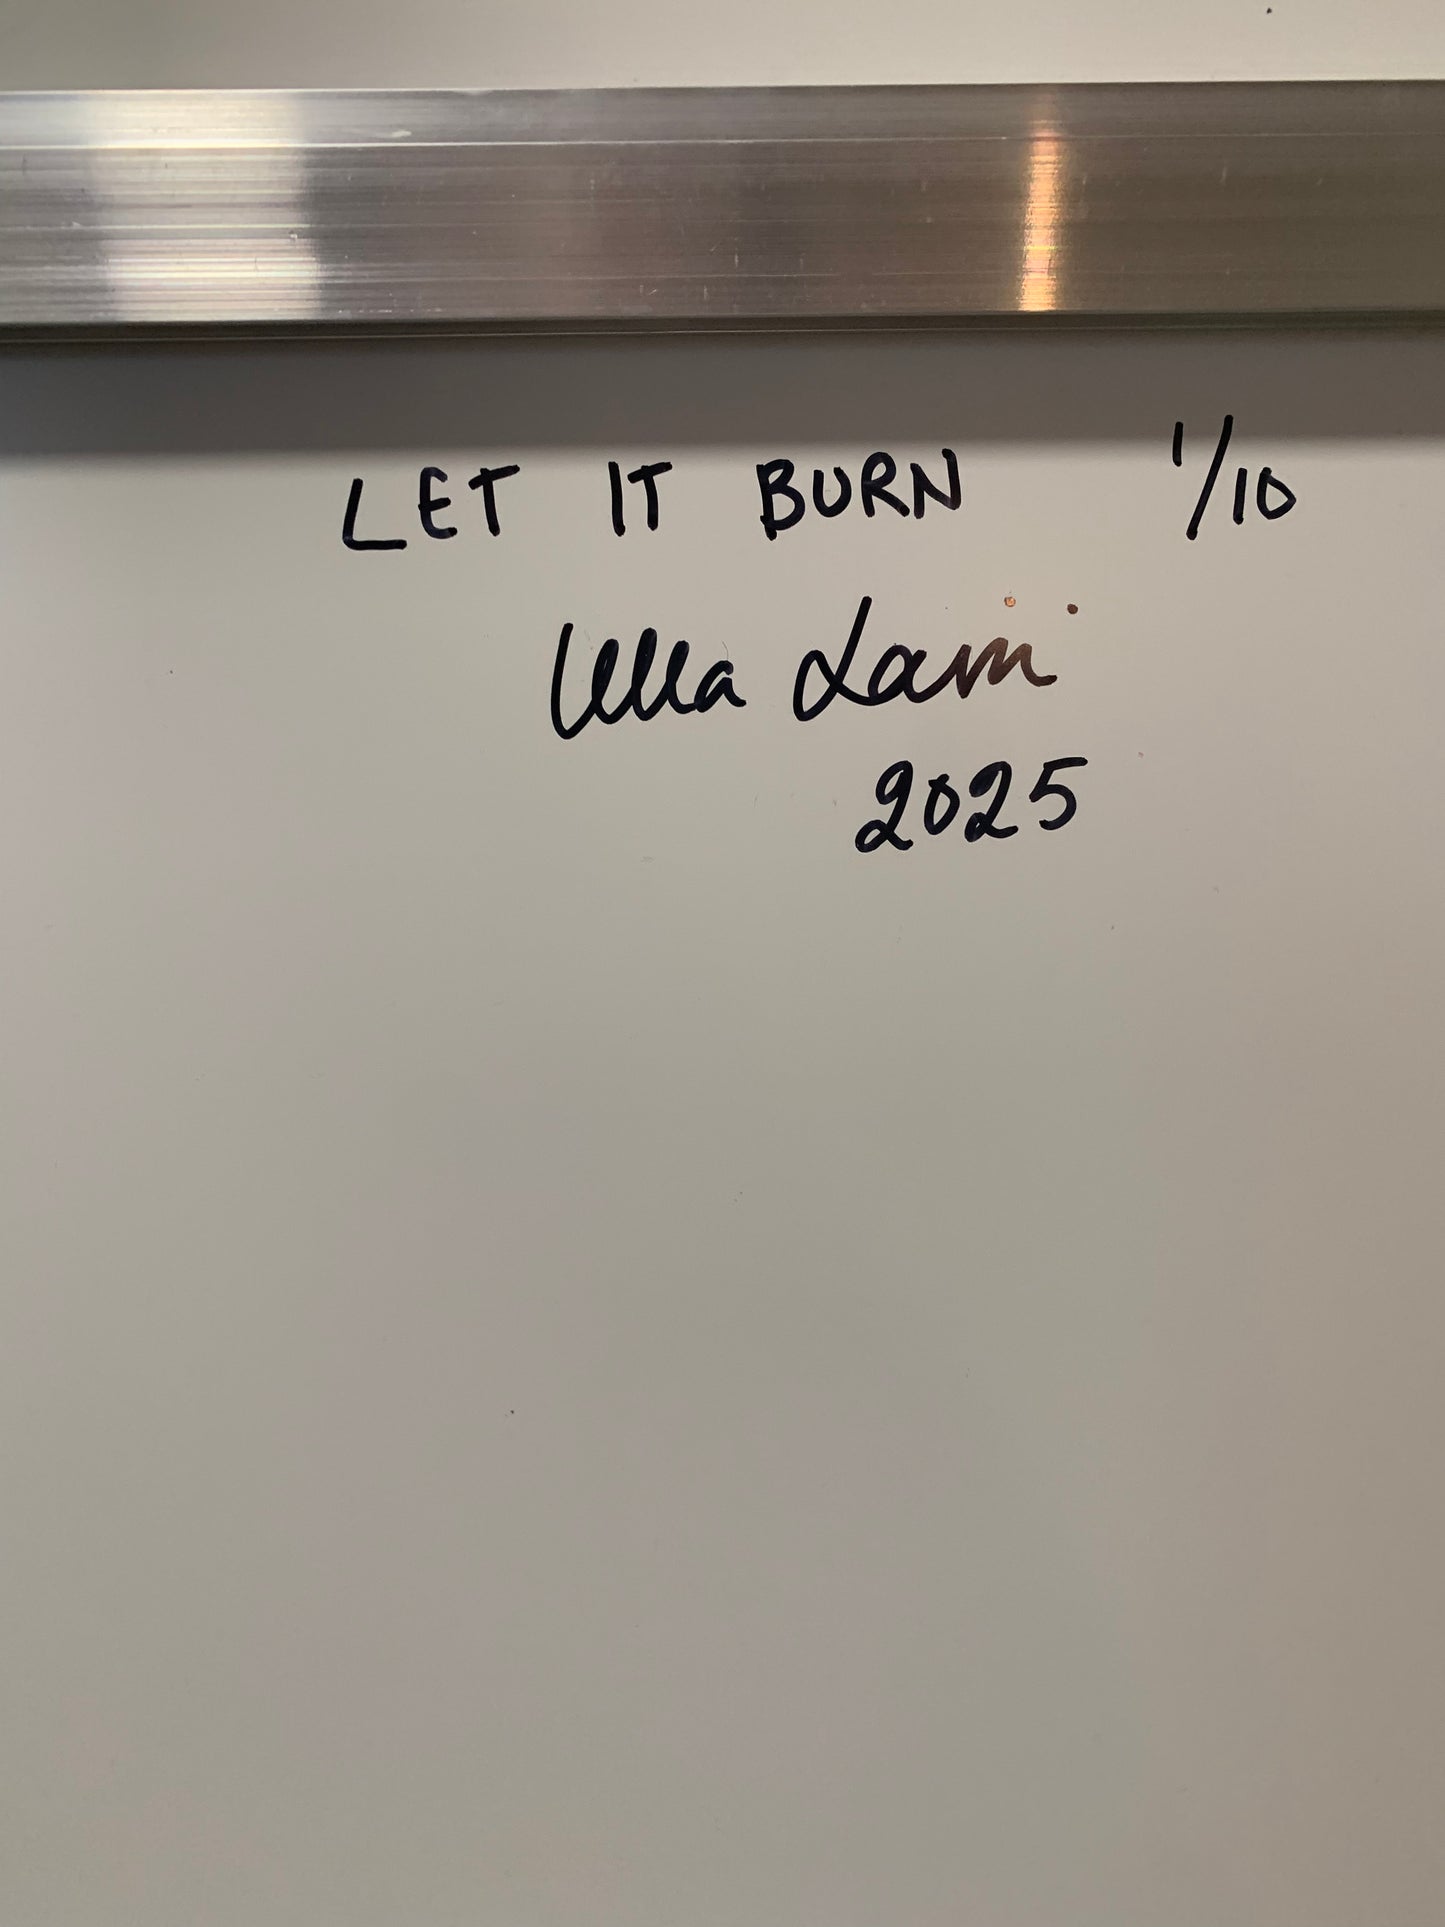 LET IT BURN 1/10
Ulla
2025